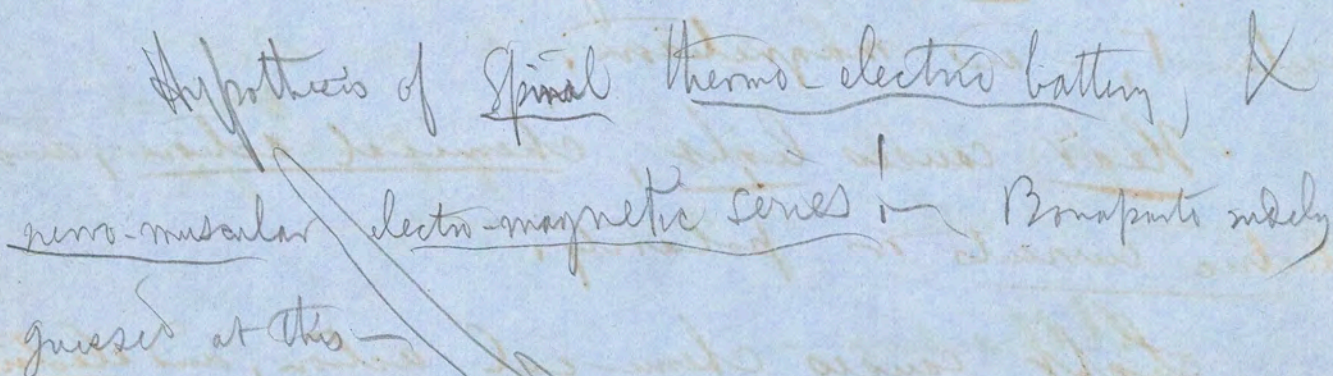 Hypothesis of Spinal thermo-electric battery, &
nervo-muscular electro-magnetic series!— Bonaparte rudely
guessed at this—